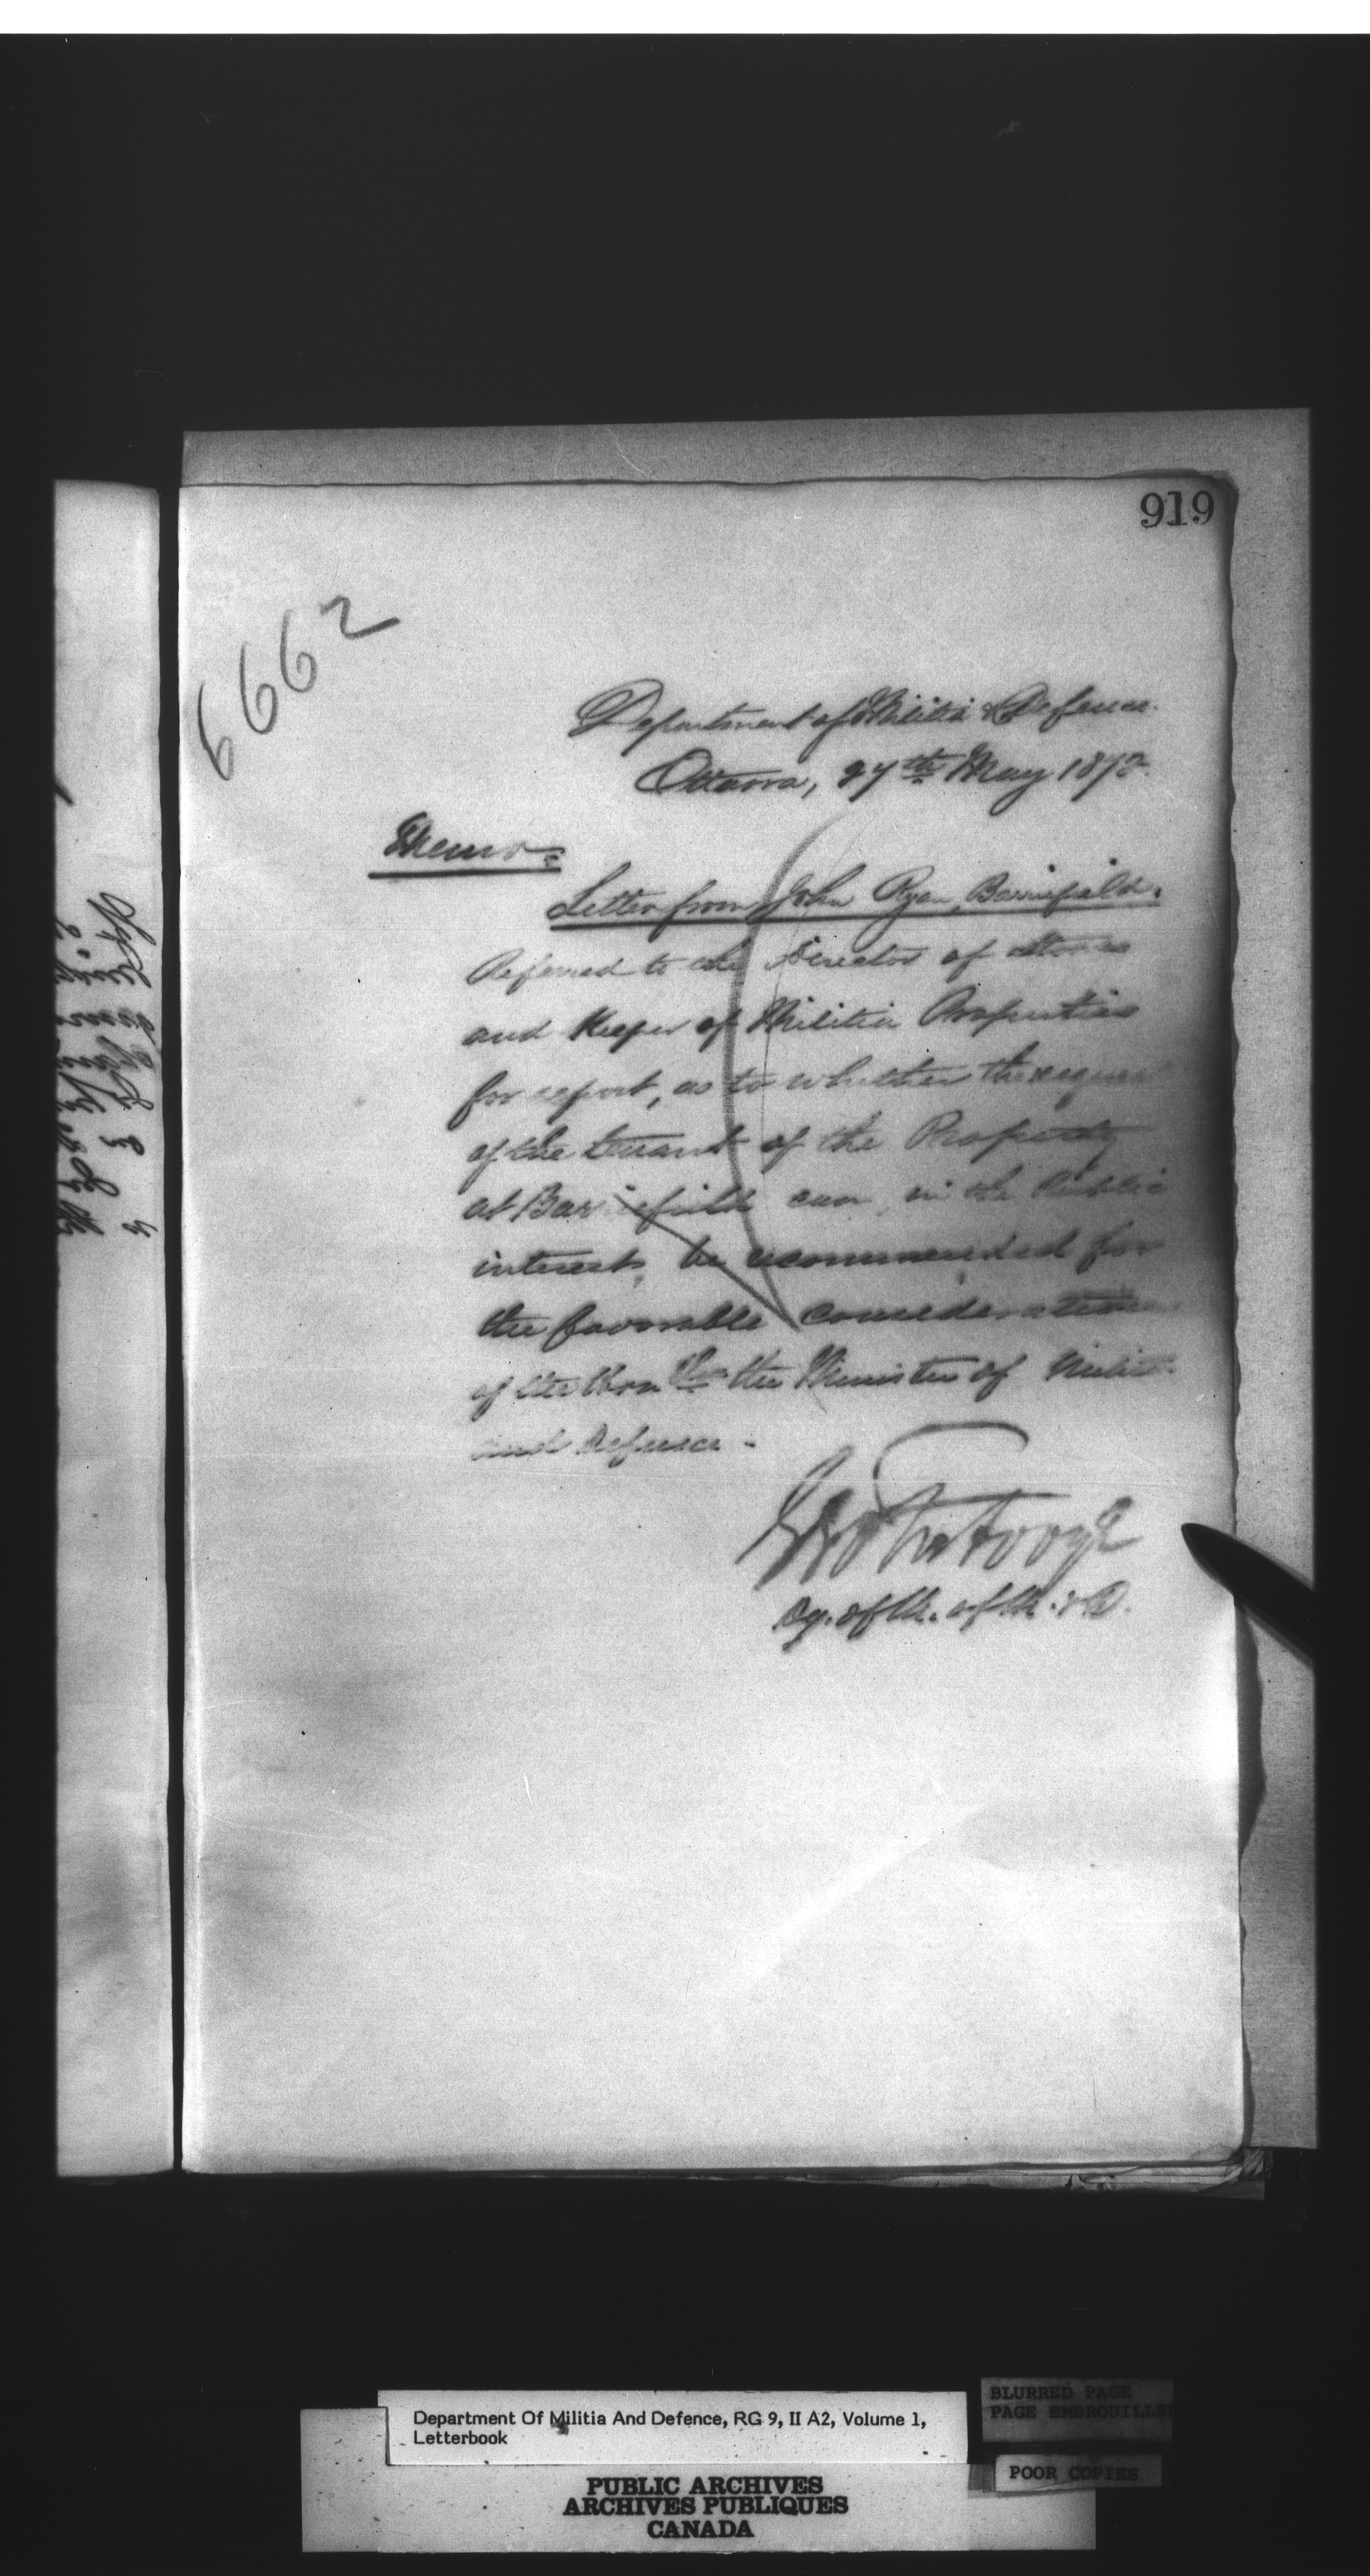 919
6662
Department of Militia & Defence.
Ottawa, 27th May 187
Memo.
Letter from John Ryan, Barriefield.
Referred to the Director of Stores
and Keeper of Militia Properties
for report, as to whether the request
of the tenant of the Property
at Barriefield can, in the Public
interest, be recommended for
the favorable consideration
of the Honble the Minister of Militia
and Defence.
Dy. of M. of M. & D.
Department Of Militia And Defence, RG 9, II A2, Volume 1,
Letterbook
BLURRED PAGE
PAGE EMBROUILLE
POOR COPIES
PUBLIC ARCHIVES
ARCHIVES PUBLIQUES
CANADA